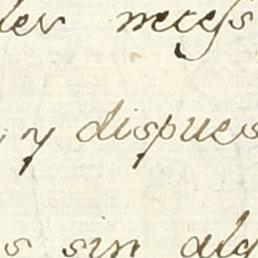 ler necess
y dispues
s sin alg